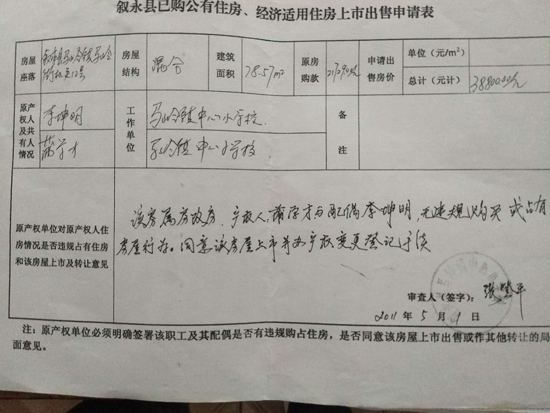 叙永县已购公有住房、经济适用住房上市出售申请表
房屋座落 叙永县马岭镇马岭
房屋结构 混合
建筑面积 78.57m²
原房购款
申请出售房价 单位（元/m²）
总计（元计） 38800元
原产权人及共有人情况 李坤明
工作单位 马岭镇中心小学校
马岭镇中心小学校
备注
原产权单位对原产权人住房情况是否违规占有住房和该房屋上市及转让意见
该房属房改房，产权人 与配偶李坤明，无违规购买或占有
房屋行为。同意该房屋上市并办产权变更登记手续
审查人（签字）：
2011年5月1日
注：原产权单位必须明确签署该职工及其配偶是否有违规购占住房，是否同意该房屋上市出售或作其他转让的局
面意见。